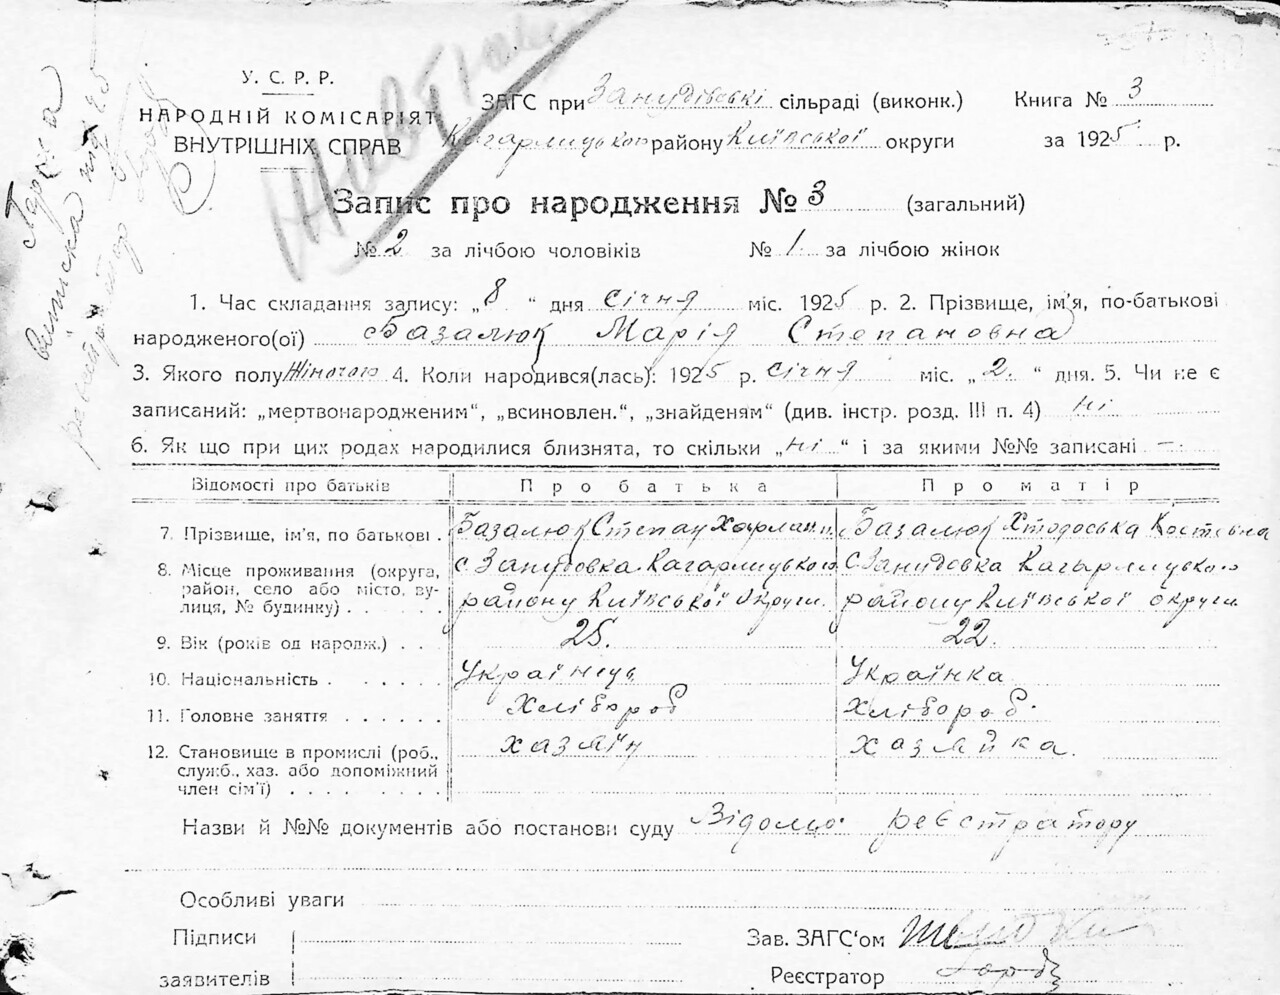 У. С. Р. Р.
НАРОДНІЙ КОМІСАРІЯТ
ВНУТРІШНІХ СПРАВ
ЗАГС при Занудівські сільраді (виконк.) Книга № 3
Кагарлицького району Київської округи за 1925 р.
Запис про народження № 3 (загальний)
№ 2 за лічбою чоловіків № 1 за лічбою жінок
1. Час складання запису: „8“ дня січня міс. 1925 р. 2. Прізвище, ім'я, по-батькові
народженого(ої) Базалюк Марія Степановна
3. Якого полу Жіночого 4. Коли народився(лась): 1925 р. січня міс. „2.“ дня. 5. Чи не є
записаний: „мертвонародженим“, „всиновлен.“, „знайденям“ (див. інстр. розд. III п. 4) ні
6. Як що при цих родах народилися близнята, то скільки „ні“ і за якими №№ записані —
Відомості про батьків Про батька Про матір
7. Прізвище, ім'я, по батькові . Базалюк Степан Базалюк Хтодоська Костевна
8. Місце проживання (округа, район, село або місто, вулиця, № будинку) . . . . . с. Занудовка Кагарлицького району Київської округи. с Занудовка Кагарлицького району Київської округи
9. Вік (років од народж.) . . . 25. 22.
10. Національність . . . . . . Українець Українка
11. Головне заняття . . . . . . Хлібороб Хлібороб.
12. Становище в промислі (роб., служб., хаз. або допоміжний член сім'ї) . . . . . . . . хазяїн хазяйка.
Назви й №№ документів або постанови суду Відомо реєстратору
Особливі уваги
Підписи
заявителів
Зав. ЗАГС'ом
Реєстратор